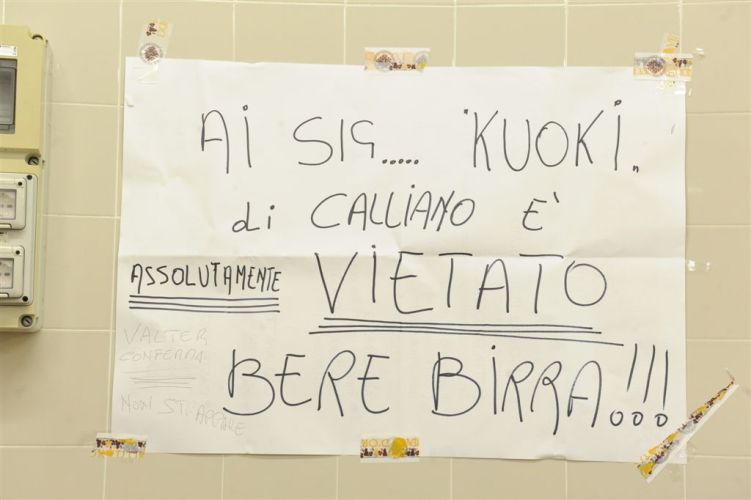 AI SIG..... "KUOKI"
di CALLIANO E'
ASSOLUTAMENTE VIETATO
BERE BIRRA!!!
VALTER
CONFERMA
NON STRAPPARE